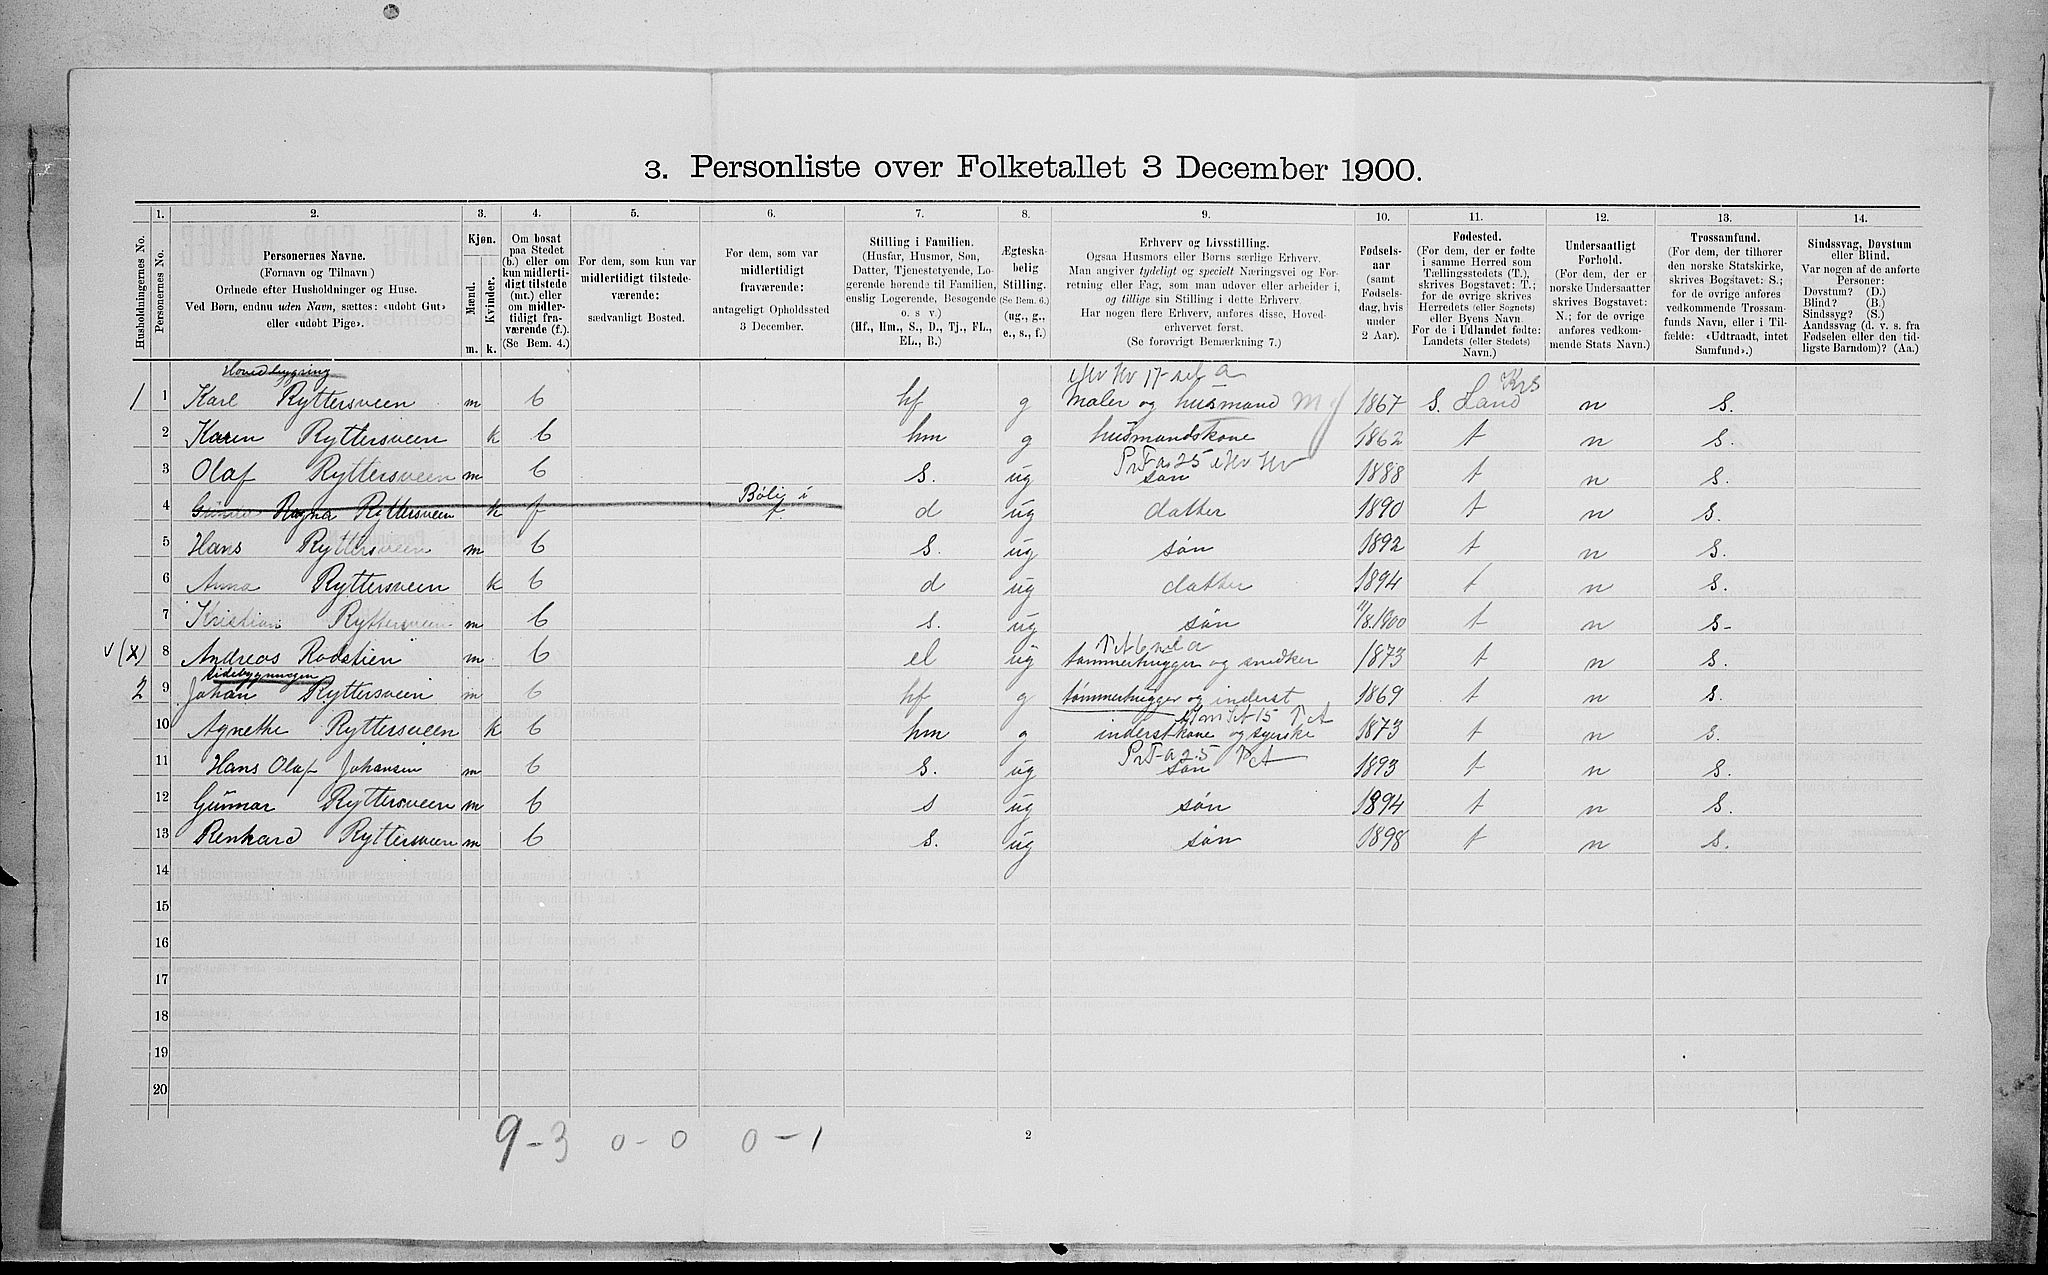 3. Personliste over Folketallet 3 December 1900.
1. 2. 3. 4. 5. 6. 7. 8. 9. 10. 11. 12. 13. 14.
Husholdningernes No.
Personernes No.
Personernes Navne.
(Fornavn og Tilnavn)
Ordnede efter Husholdninger og Huse.
Ved Børn, endnu uden Navn, sættes: «udøbt Gut»
eller «udøbt Pige».
Kjøn.
Mænd.
Kvinder.
m. k.
Om bosat
paa Stedet
(b.) eller om
kun midlerti-
digt tilstede
(mt.) eller
om midler-
tidigt fra-
værende (f.).
(Se Bem. 4.)
For dem, som kun var
midlertidigt tilstede-
værende:
sædvanligt Bosted.
For dem, som var
midlertidigt
fraværende:
antageligt Opholdssted
3 December.
Stilling i Familien.
(Husfar, Husmor, Søn,
Datter, Tjenestetyende, Lo-
gerende hørende til Familien,
enslig Logerende, Besøgende
o. s v.)
(Hf., Hm., S., D., Tj., FL.,
EL., B.)
Ægteska-
belig
Stilling.
(Se Bem. 6.)
(ug., g.,
e., s., f.)
Erhverv og Livsstilling.
Ogsaa Husmors eller Børns særlige Erhverv.
Man angiver tydeligt og specielt Næringsvei og For-
retning eller Fag, som man udøver eller arbeider i,
og tillige sin Stilling i dette Erhverv.
Har nogen flere Erhverv, anføres disse, Hoved-
erhvervet først.
(Se forøvrigt Bemærkning 7.)
Fødsels-
aar
(samt
Fødsels-
dag, hvis
under
2 Aar).
Fødested.
(For dem, der er fødte
i samme Herred som
Tællingsstedets (T.),
skrives Bogstavet: T.;
for de øvrige skrives
Herredets (eller Sognets)
eller Byens Navn.
For de i Udlandet fødte:
Landets (eller Stedets)
Navn.)
Undersaatligt
Forhold.
(For dem, der er
norske Undersaatter
skrives Bogstavet:
N.; for de øvrige
anføres vedkom-
mende Stats Navn.)
Trossamfund.
(For dem, der tilhører
den norske Statskirke,
skrives Bogstavet: S.;
for de øvrige anføres
vedkommende Trossam-
funds Navn, eller i Til-
fælde: «Udtraadt, intet
Samfund».)
Sindssvag, Døvstum
eller Blind.
Var nogen af de anførte
Personer:
Døvstum? (D.)
Blind? (B.)
Sindssyg? (S.)
Aandssvag (d. v. s. fra
Fødselen eller den tid-
ligste Barndom)? (Aa.)
Hovedbygning
1 1 Karl Ryttersveen m b hf g Maler og husmand 1867 S. Land n S.
2 Karen Ryttersveen k b hm g husmandskone 1862 t n S.
3 Olaf Ryttersveen m b S. ug søn 1888 t n S.
4 Ragna Ryttersveen k f Bolig i t. d ug datter 1890 t n S.
5 Hans Ryttersveen m b S. ug søn 1892 t n S.
6 Anna Ryttersveen k b d ug datter 1894 t n S.
7 Kristian Ryttersveen m b s. ug søn 11/8.1900 t n S-
v (x) 8 Andreas Rodstien m. b el ug tømmerhugger og snedker 1873 t n S.
Sidebygningen
2 9 Johan Ryttersveen m b hf g tømmerhugger og inderst 1869 t n S.
10 Agnethe Ryttersveen k b hm g inderstkone og syerske 1873 t n S.
11 Hans Olaf Johansen m b S. ug søn 1893 t n S.
12 Gunnar Ryttersveen m b s ug søn 1894 t n S.
13 Renhard Ryttersveen m b S. ug søn 1898 t n S.
14
15
16
17
18
19
20
9-3 0-0 0-1
2